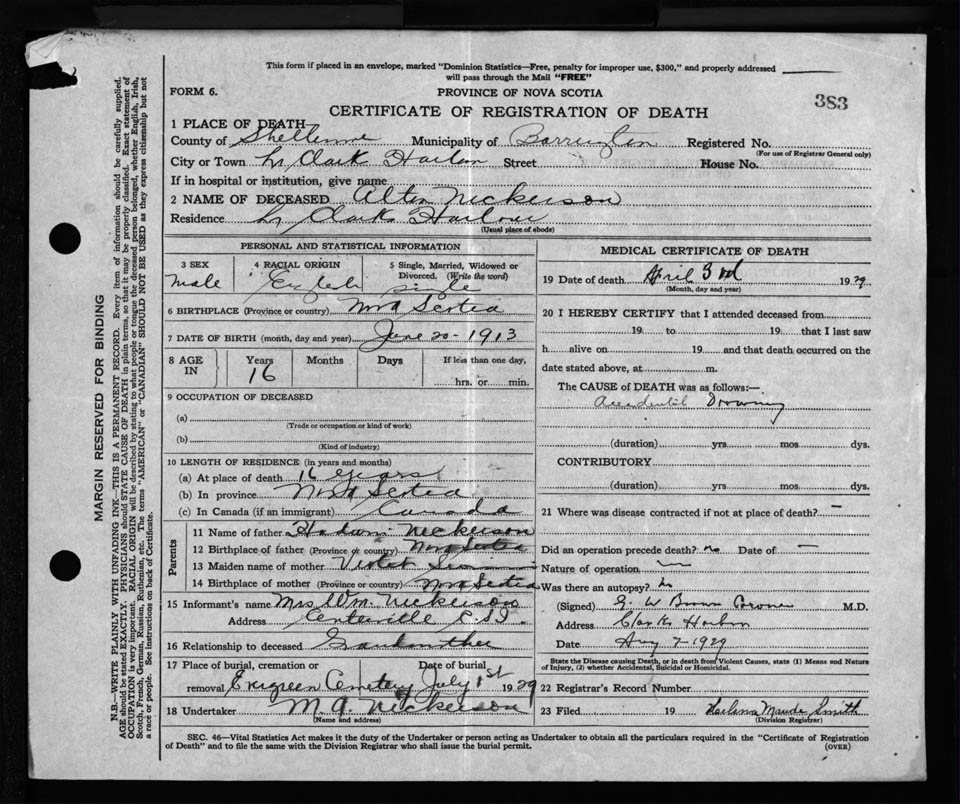 This form if placed in an envelope, marked "Dominion Statistics—Free, penalty for improper use, $300," and properly addressed
will pass through the Mail "FREE"
FORM 6.
PROVINCE OF NOVA SCOTIA
383
CERTIFICATE OF REGISTRATION OF DEATH
1 PLACE OF DEATH
County of Shelburne Municipality of Barrington Registered No.
(For use of Registrar General only)
City or Town Clark Harbor Street House No.
If in hospital or institution, give name
2 NAME OF DECEASED Nickerson
Residence Clarks Harbour
(Usual place of abode)
PERSONAL AND STATISTICAL INFORMATION
3 SEX
male
4 RACIAL ORIGIN
English
5 Single, Married, Widowed or Divorced. (Write the word)
Single
6 BIRTHPLACE (Province or country) Nova Scotia
7 DATE OF BIRTH (month, day and year) June 20 - 1913
8 AGE IN
Years
16
Months
Days
If less than one day,
hrs. or min.
9 OCCUPATION OF DECEASED
(a)
(Trade or occupation or kind of work)
(b)
(Kind of industry)
10 LENGTH OF RESIDENCE (in years and months)
(a) At place of death 16 years
(b) In province Nova Scotia
(c) In Canada (if an immigrant) Canada
Parents
11 Name of father Nickerson
12 Birthplace of father (Province or country) Nova Scotia
13 Maiden name of mother Violet
14 Birthplace of mother (Province or country) Nova Scotia
15 Informant's name Mrs Wm. Nickerson
Address Centerville C.S.I.
16 Relationship to deceased Grandmother
17 Place of burial, cremation or removal Evergreen Cemetery
Date of burial July 1st 1929
18 Undertaker M A Nickerson
(Name and address)
MEDICAL CERTIFICATE OF DEATH
19 Date of death April 3rd 1929
(Month, day and year)
20 I HEREBY CERTIFY that I attended deceased from
19 to 19 that I last saw
h alive on 19 and that death occurred on the
date stated above, at m.
The CAUSE of DEATH was as follows:—
Accidental Drowning
(duration) yrs mos dys.
CONTRIBUTORY
(duration) yrs mos dys.
21 Where was disease contracted if not at place of death? —
Did an operation precede death? no Date of —
Nature of operation
Was there an autopsy? no
(Signed) E W Brown Coroner M.D.
Address Clarks Harbor
Date Aug 7 - 1929
State the Disease causing Death, or in death from Violent Causes, state (1) Means and Nature
of Injury, (2) whether Accidental, Suicidal or Homicidal.
22 Registrar's Record Number
23 Filed 19 Maude Smith
(Division Registrar)
SEC. 46—Vital Statistics Act makes it the duty of the Undertaker or person acting as Undertaker to obtain all the particulars required in the "Certificate of Registration
of Death" and to file the same with the Division Registrar who shall issue the burial permit.
(OVER)
MARGIN RESERVED FOR BINDING
N.B.—WRITE PLAINLY WITH UNFADING INK—THIS IS A PERMANENT RECORD. Every item of information should be carefully supplied.
AGE should be stated EXACTLY. PHYSICIANS should STATE CAUSE OF DEATH in plain terms, so that it may be properly classified. Exact statement of
OCCUPATION is very important. RACIAL ORIGIN will be described by stating to what people or tongue the deceased person belonged, whether English, Irish,
Scotch, French, German, Russian, Ruthenian, etc. The terms "AMERICAN" or "CANADIAN" SHOULD NOT BE USED as they express citizenship but not
a race or people. See instructions on back of Certificate.